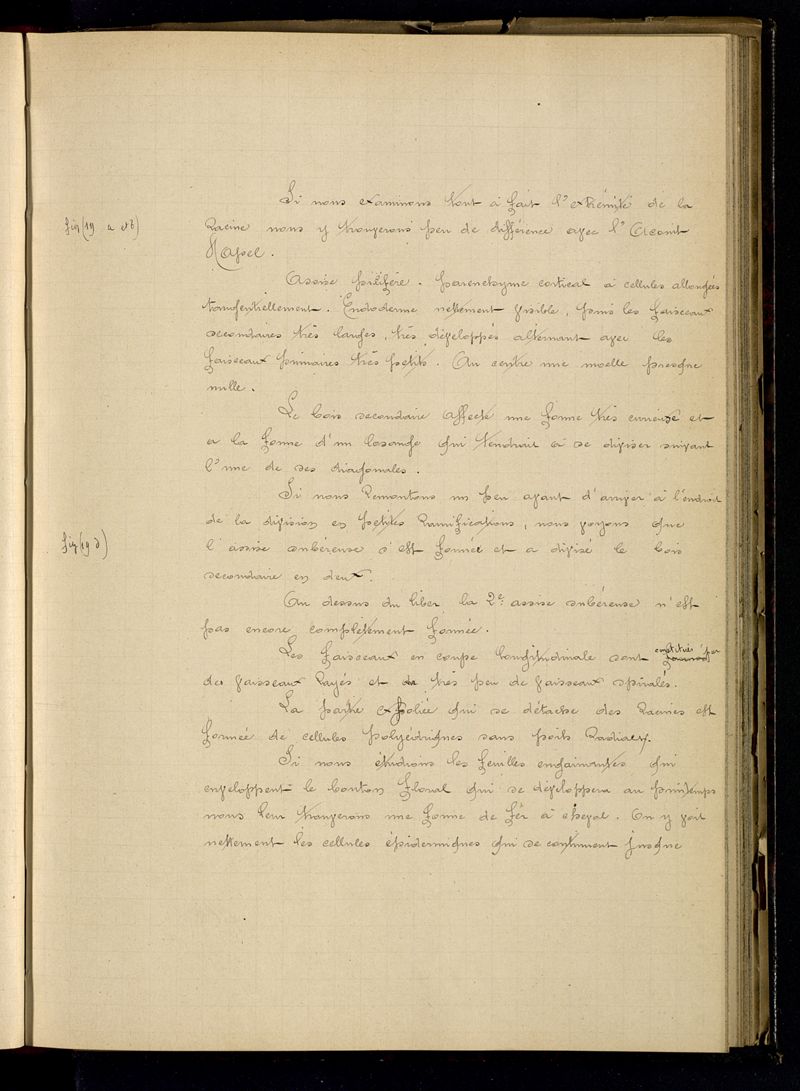 Si nous examinons tout à fait l'extrémité de la
fig (19 a et b)
Racine nous y trouverons peu de différence avec l'Aconit
Napel.
Assise pilifère. parenchyme cortical à cellules allongées
tangentiellement. Endoderme nettement visible, puis les faisceaux
secondaires très larges, très développés alternant avec les
faisceaux primaires très petits. Au centre une moelle presque
nulle.
Le bois secondaire affecte une forme très curieuse et
a la forme d'un losange qui tendrait à se diviser suivant
l'une de ses diagonales.
Si nous Remontons un peu avant d'arriver à l'endroit
de la division en petites Ramifications, nous voyons que
fig (19 d)
l'assise subéreuse s'est formée et a divisé le bois
secondaire en deux.
Au dessus du liber la 2e assise subéreuse n'est
pas encore complètement formée.
Les faisceaux en coupe longitudinale sont constitués par
de vaisseaux Rayés et de très peu de vaisseaux spiralés.
La partie exfoliée qui se détache des Racines est
formée de cellules polyédriques sans poils Radiaux.
Si nous étudions les feuilles engainantes qui
enveloppent le bouton floral qui se développera au printemps
nous leur trouverons une forme de fer à cheval. On y voit
nettement les cellules épidermiques qui se continuent jusque